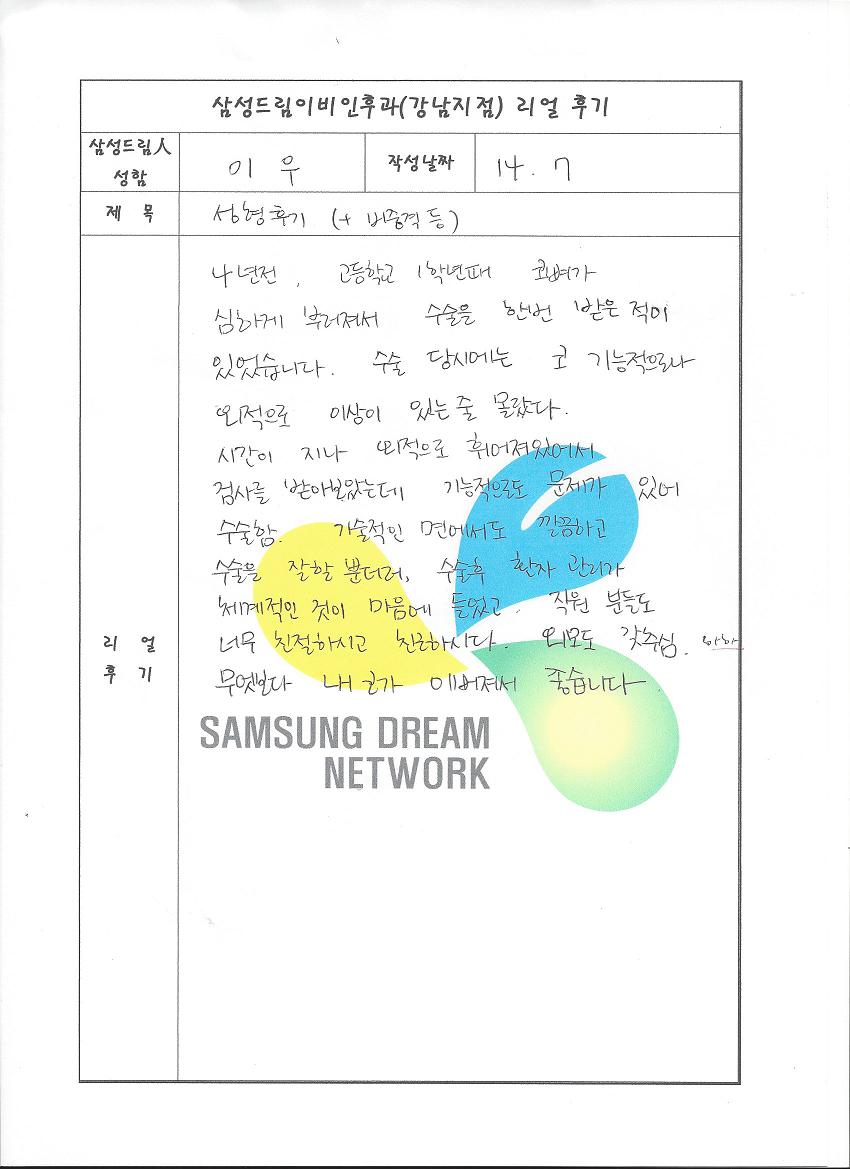 삼성드림이비인후과(강남지점) 리얼 후기
삼성드림人 성함
이 우
작성날짜
14. 7
제 목
성형후기 (+ 비중격 등)
4년전, 고등학교 1학년때 코뼈가
심하게 부러져서 수술을 한번 받은 적이
있었습니다. 수술 당시에는 코 기능적으로나
외적으로 이상이 있는 줄 몰랐다.
시간이 지나 외적으로 휘어져있어서
검사를 받아보았는데 기능적으로도 문제가 있어
수술함. 기술적인 면에서도 깔끔하고
수술을 잘할 뿐더러, 수술후 환자 관리가
체계적인 것이 마음에 들었고, 직원 분들도
너무 친절하시고 친근하시다. 외모도 갖추심.
무엇보다 내 코가 이뻐져서 좋습니다.
리 얼
후 기
SAMSUNG DREAM
NETWORK